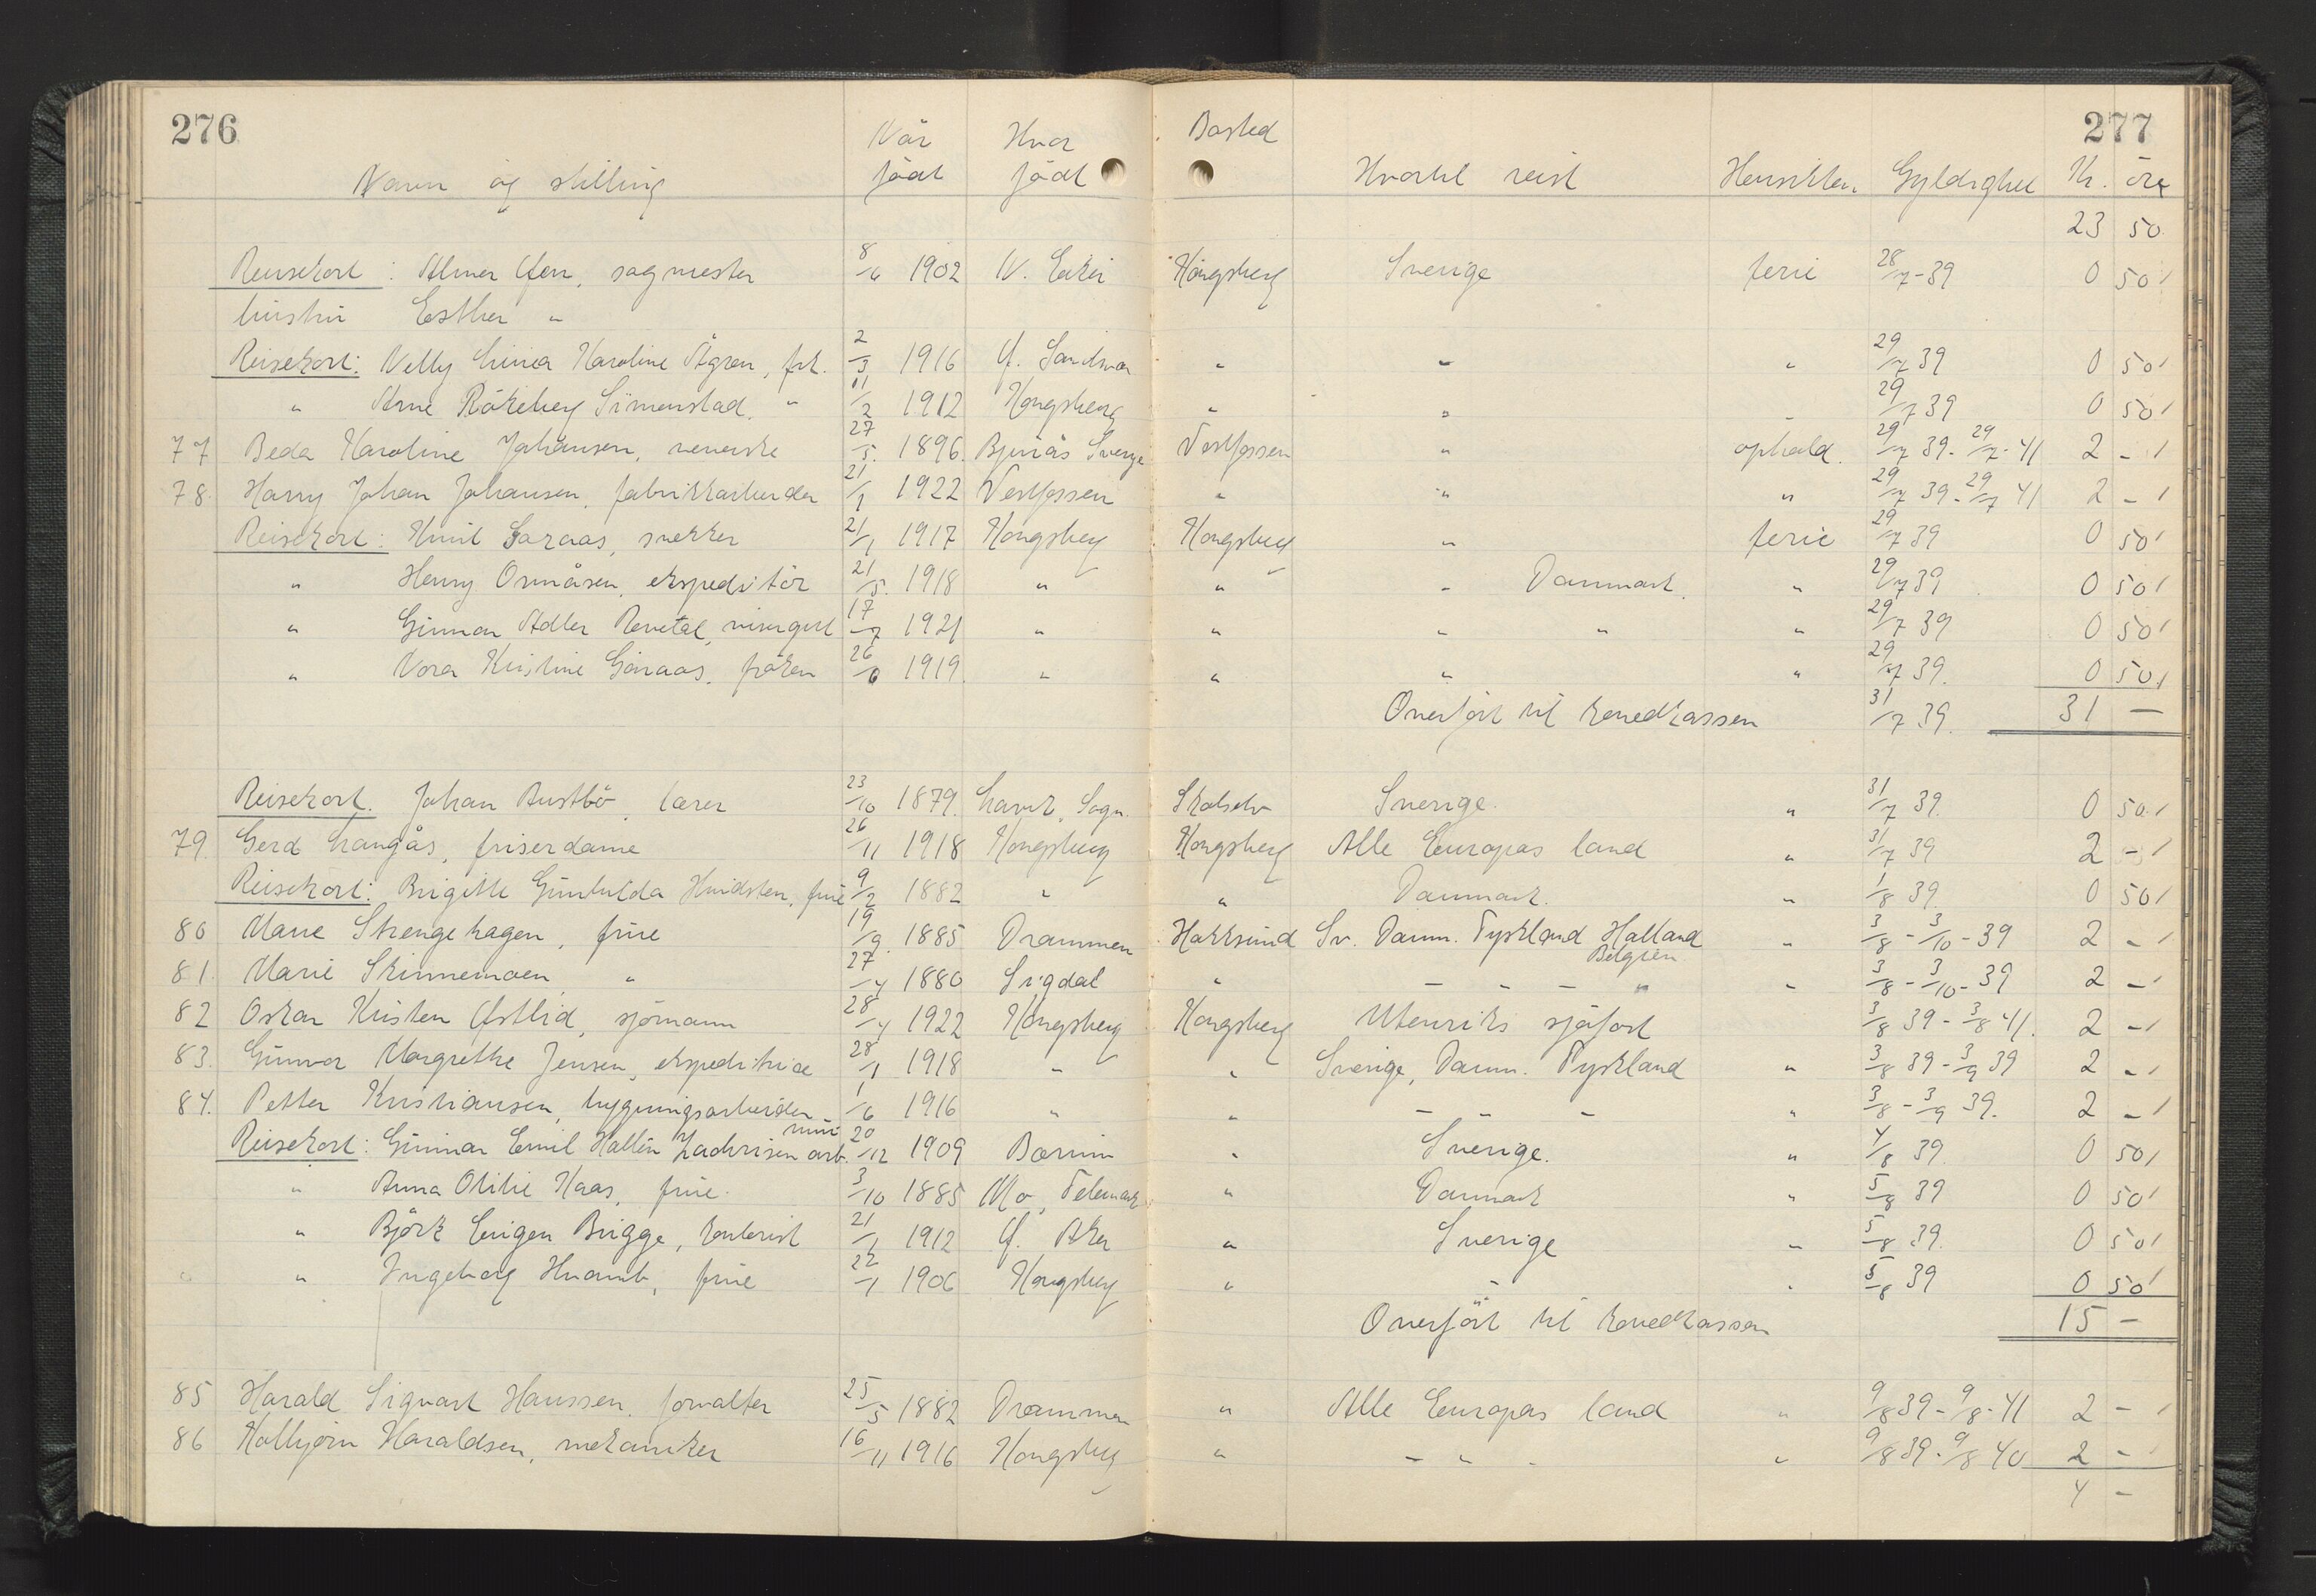 276 277
Navn og stilling Når født Hvor født Bosted Hvortil reist Hensikten Gyldighet Kr. öre
23 50
Reisekort: Almer Øen, sagmester 8/6 1902 N. Eiker Kongsberg Sverige ferie 28/7-39 0 50
hustru Esther "
Reisekort: Nelly Linea Karoline Ågren, frk. 2/3 1916 Ø. Sandsvær " " " 29/7 39 0 50
" Arne Råkeberg Simenstad " 11/2 1912 Kongsberg " " " 29/7 39 0 50
77 Beda Karoline Johansen, svenske 27/5 1896 Sverige Vestfossen " ophold. 29/7 39 - 29/7 - 41 2 -
78. Harry Johan Johansen, fabrikkarbeider 21/1 1922 Vestfossen " " " 29/7 39 - 29/7 41 2 -
Reisekort: Garaas, snekker 21/1 1917 Kongsberg Kongsberg " ferie 29/7 39 0 50
" Henry Ormåsen, ekspeditör 21/5 1918 " " " Danmark. " 29/7 39 0 50
" Gunnar Adler Revetal, visergutt 17/7 1921 " " " " " 29/7 39 0 50
" Nora Kristine Garaas, fröken 26/6 1919. " " " " 29/7 39. 0 50
Overfört til hovedkassen 31/7 39. 31 -
Reisekort. Johan Austbö, lærer 23/10 1879. Lavik, Sogn. Skotselv Sverige. " 31/7 39. 0 50
79. Gerd Langås, friserdame 26/11 1918 Kongsberg Kongsberg Alle Europas land " 31/7 39 2 -
Reisekort: Brigitte Gunhilda Hvidsten, frue 9/2 1882 " " Danmark. " 1/8 39. 0 50
80 Marie Strengehagen, frue 19/9. 1885 Drammen Hokksund Sv. Danm. Tyskland Holland Belgien " 3/8 - 3/10 - 39 2 -
81. Marie Skinnemoen, " 27/4 1880 Sigdal " - - - " " 3/8 - 3/10 - 39 2 -
82 Oskar Kristen Østlid, sjömann 28/4 1922 Kongsberg Kongsberg Utenriks sjöfart 3/8 39 - 3/8 41. 2 -
83. Gunvor Margrethe Jensen, ekspeditrice 28/1 1918 " " Sverige, Danm. Tyskland " 3/8 39 - 3/9 39 2 -
84. Petter Kristiansen, bygningsarbeider 1/6 1916 " " - - - " 3/8 - 3/9 39. 2 -
Reisekort: Gunnar Emil Hallén Zachrisen mur arb. 20/12 1909 Bærum " Sverige. " 4/8 39 0 50
" Anna Otilie Haas, frue. 3/10 1885 Mo, Telemark " Danmark " 5/8 39 0 50
" Björk Eugen Brigge, kontorist 21/1 1912 Ø. Aker " Sverige " 5/8 39. 0 50
" Ingeborg Hvamb, frue 22/1 1906 Kongsberg " " " 5/8 39 0 50
Overfört til hovedkassen 15 -
85 Harald Sigvart Hanssen, forvalter 25/5 1882 Drammen " Alle Europas land " 9/8 39 - 9/8 - 41 2 -
86 Kolbjørn Haraldsen, mekaniker 16/11 1916 Kongsberg " - " - " 9/8 39 - 9/8 40 2 -
4 -